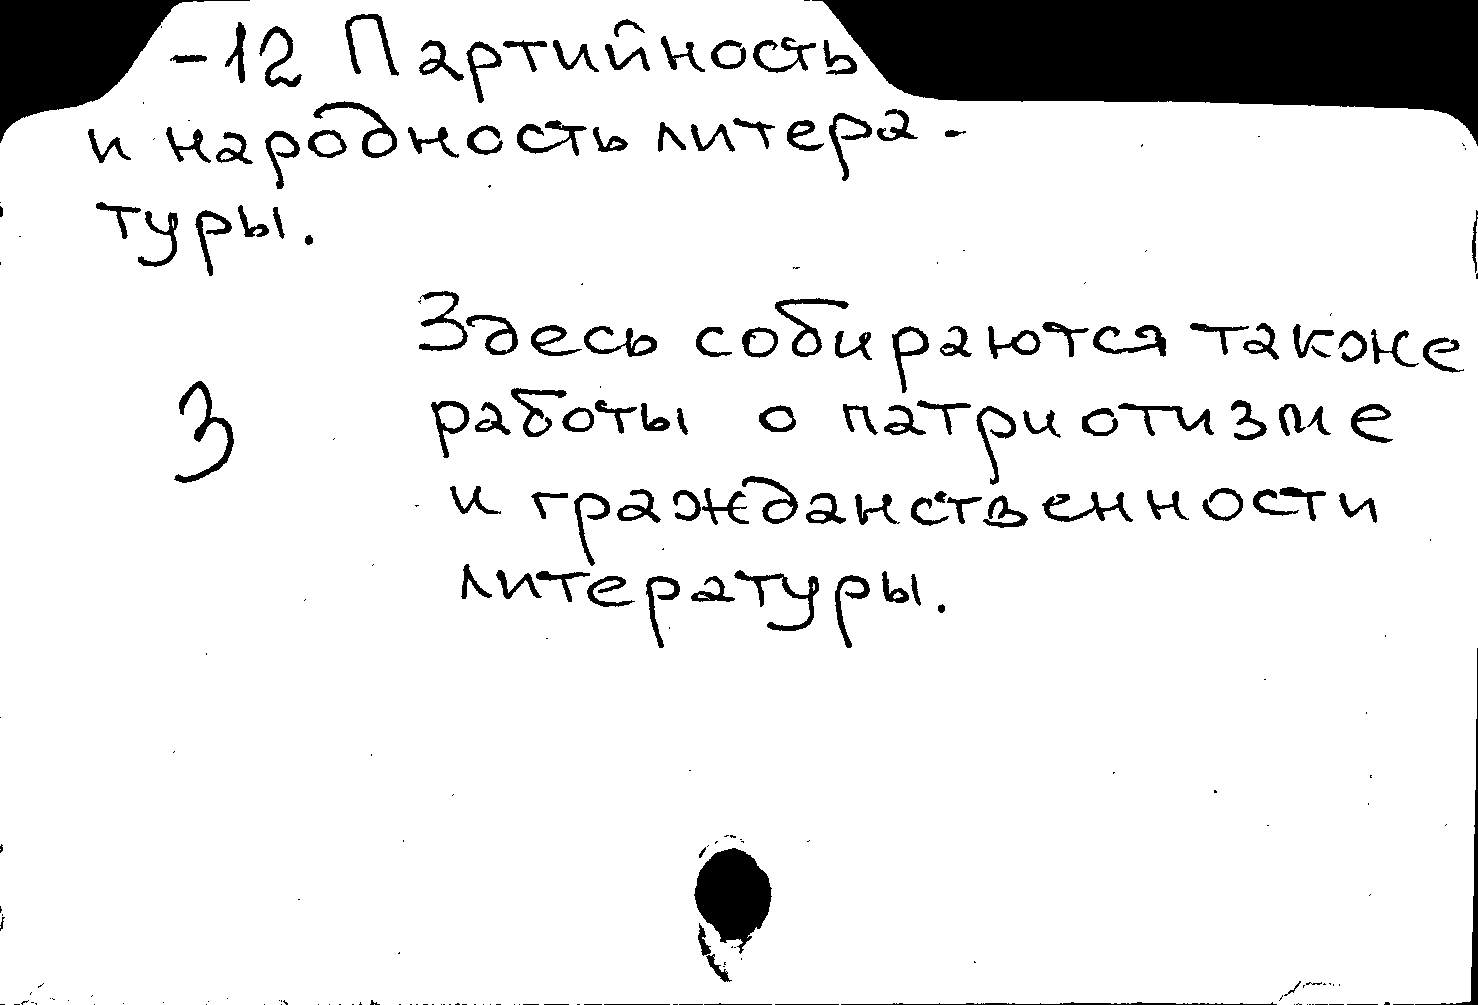 -12 Партийность
и народность литера-
туры.
Здесь собираются также
3 работы о патриотизме
и гражданственности
литературы.